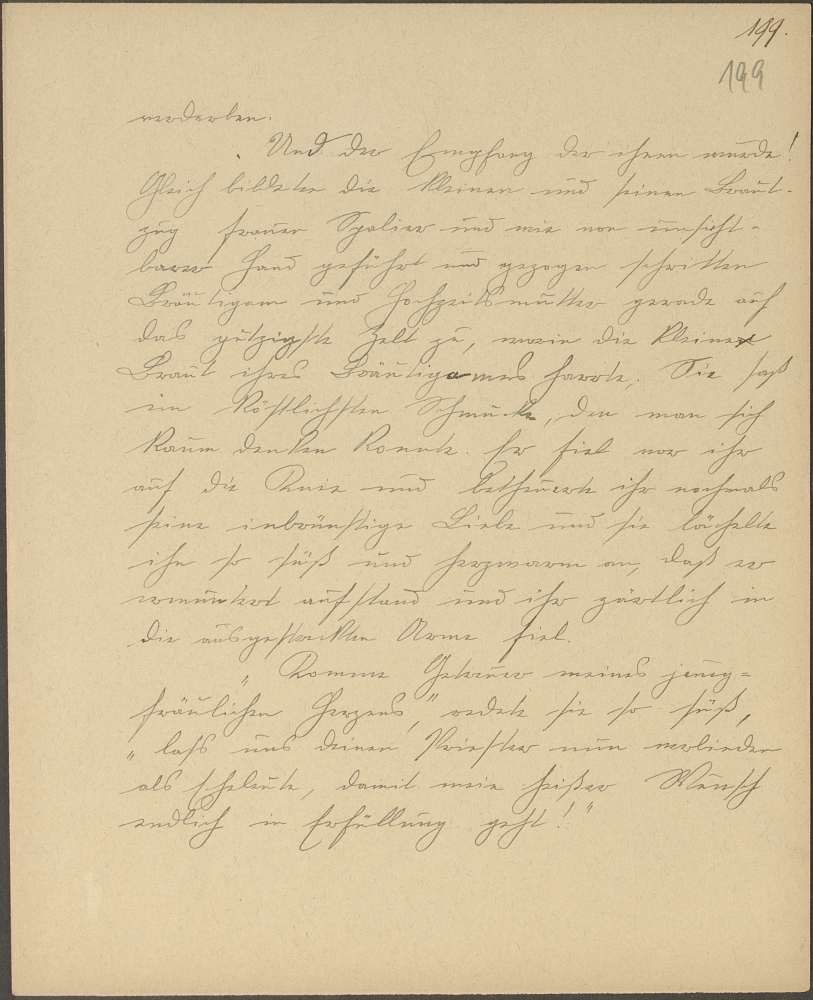 199.
199
verderben.
Und der Empfang der ihnen wurde!
Gleich bildeten die Kleinen und seinen Braut-
zug frauer Spalier und wie von unsicht-
barer Hand geführt und gezogen schritten
Bräutigam und Hochzeitsmutter gerade auf
das putzigste Zelt zu, worin die kleine
Braut ihres Bräutigames harrte. Sie saß
im köstlichsten Schmucke, den man sich
kaum denken konnte. Er fiel vor ihr
auf die Knie und betheuerte ihr nochmals
seine inbrünstige Liebe und sie lächelte
ihn so süß und herzwarm an, daß er
ermuntert aufstand und ihr zärtlich in
die ausgestreckten Arme fiel.
„Komme Getreuer meines jung-
fräulichen Herzens," redete sie so süß,
„lass uns deinen Priester nun
als Eheleute, damit mein heißer Wunsch
endlich in Erfüllung geht!"